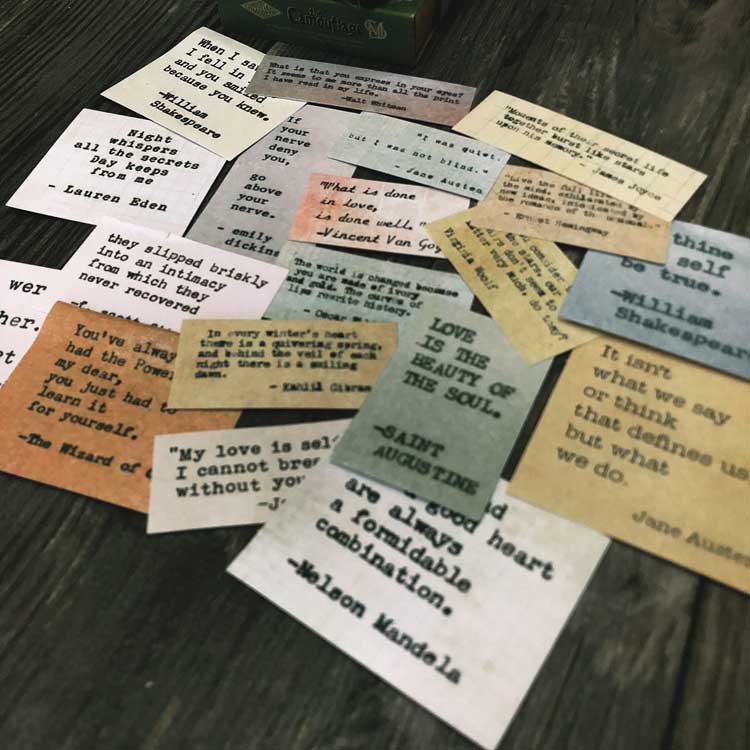 the
Camouflage
When I sa
I fell in
and you smiled
because you knew.
-William
Shakespeare
What is that you express in your eyes?
It seems to me more than all the print
I have read in my life.
-Walt Whitman
"Moments of their secret life
together burst like stars
upon his memory."
- James Joyce
Night
whispers
all the secrets
Day keeps
from me
- Lauren Eden
If
your
nerve
deny
you,
go
above
your
nerve.
- emily
dickins
"I was quiet,
but I was not blind."
- Jane Austen
"What is done
in love,
is done well."
-Vincent Van Gog
"Live the full life of
the mind, exhilarated by
new ideas, intoxicated by
the romance of the unusual."
- Ernest Hemingway
consider
the stars,
don't seem to
matter very much, do they?
Virginia Woolf
thine
self
be true.
-William
Shakespeare
they slipped briskly
into an intimacy
from which they
never recovered
The world is changed because
you are made of ivory
and gold. The curves of
lips rewrite history.
- Oscar
wer
her.
et
You've alway
had the Power
my dear,
you just had to
learn it
for yourself.
-The Wizard of
In every winter's heart
there is a quivering spring,
and behind the veil of each
night there is a smiling
dawn.
- Kahlil Gibran
LOVE
IS THE
BEAUTY OF
THE SOUL.
-SAINT
AUGUSTINE
It isn't
what we say
or think
that defines us
but what
we do.
Jane Austen
"My love is sel
I cannot bre
without you
-J
good heart
are always
a formidable
combination.
-Nelson Mandela